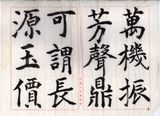 萬機振
芳聲鼎
可謂長
源玉價